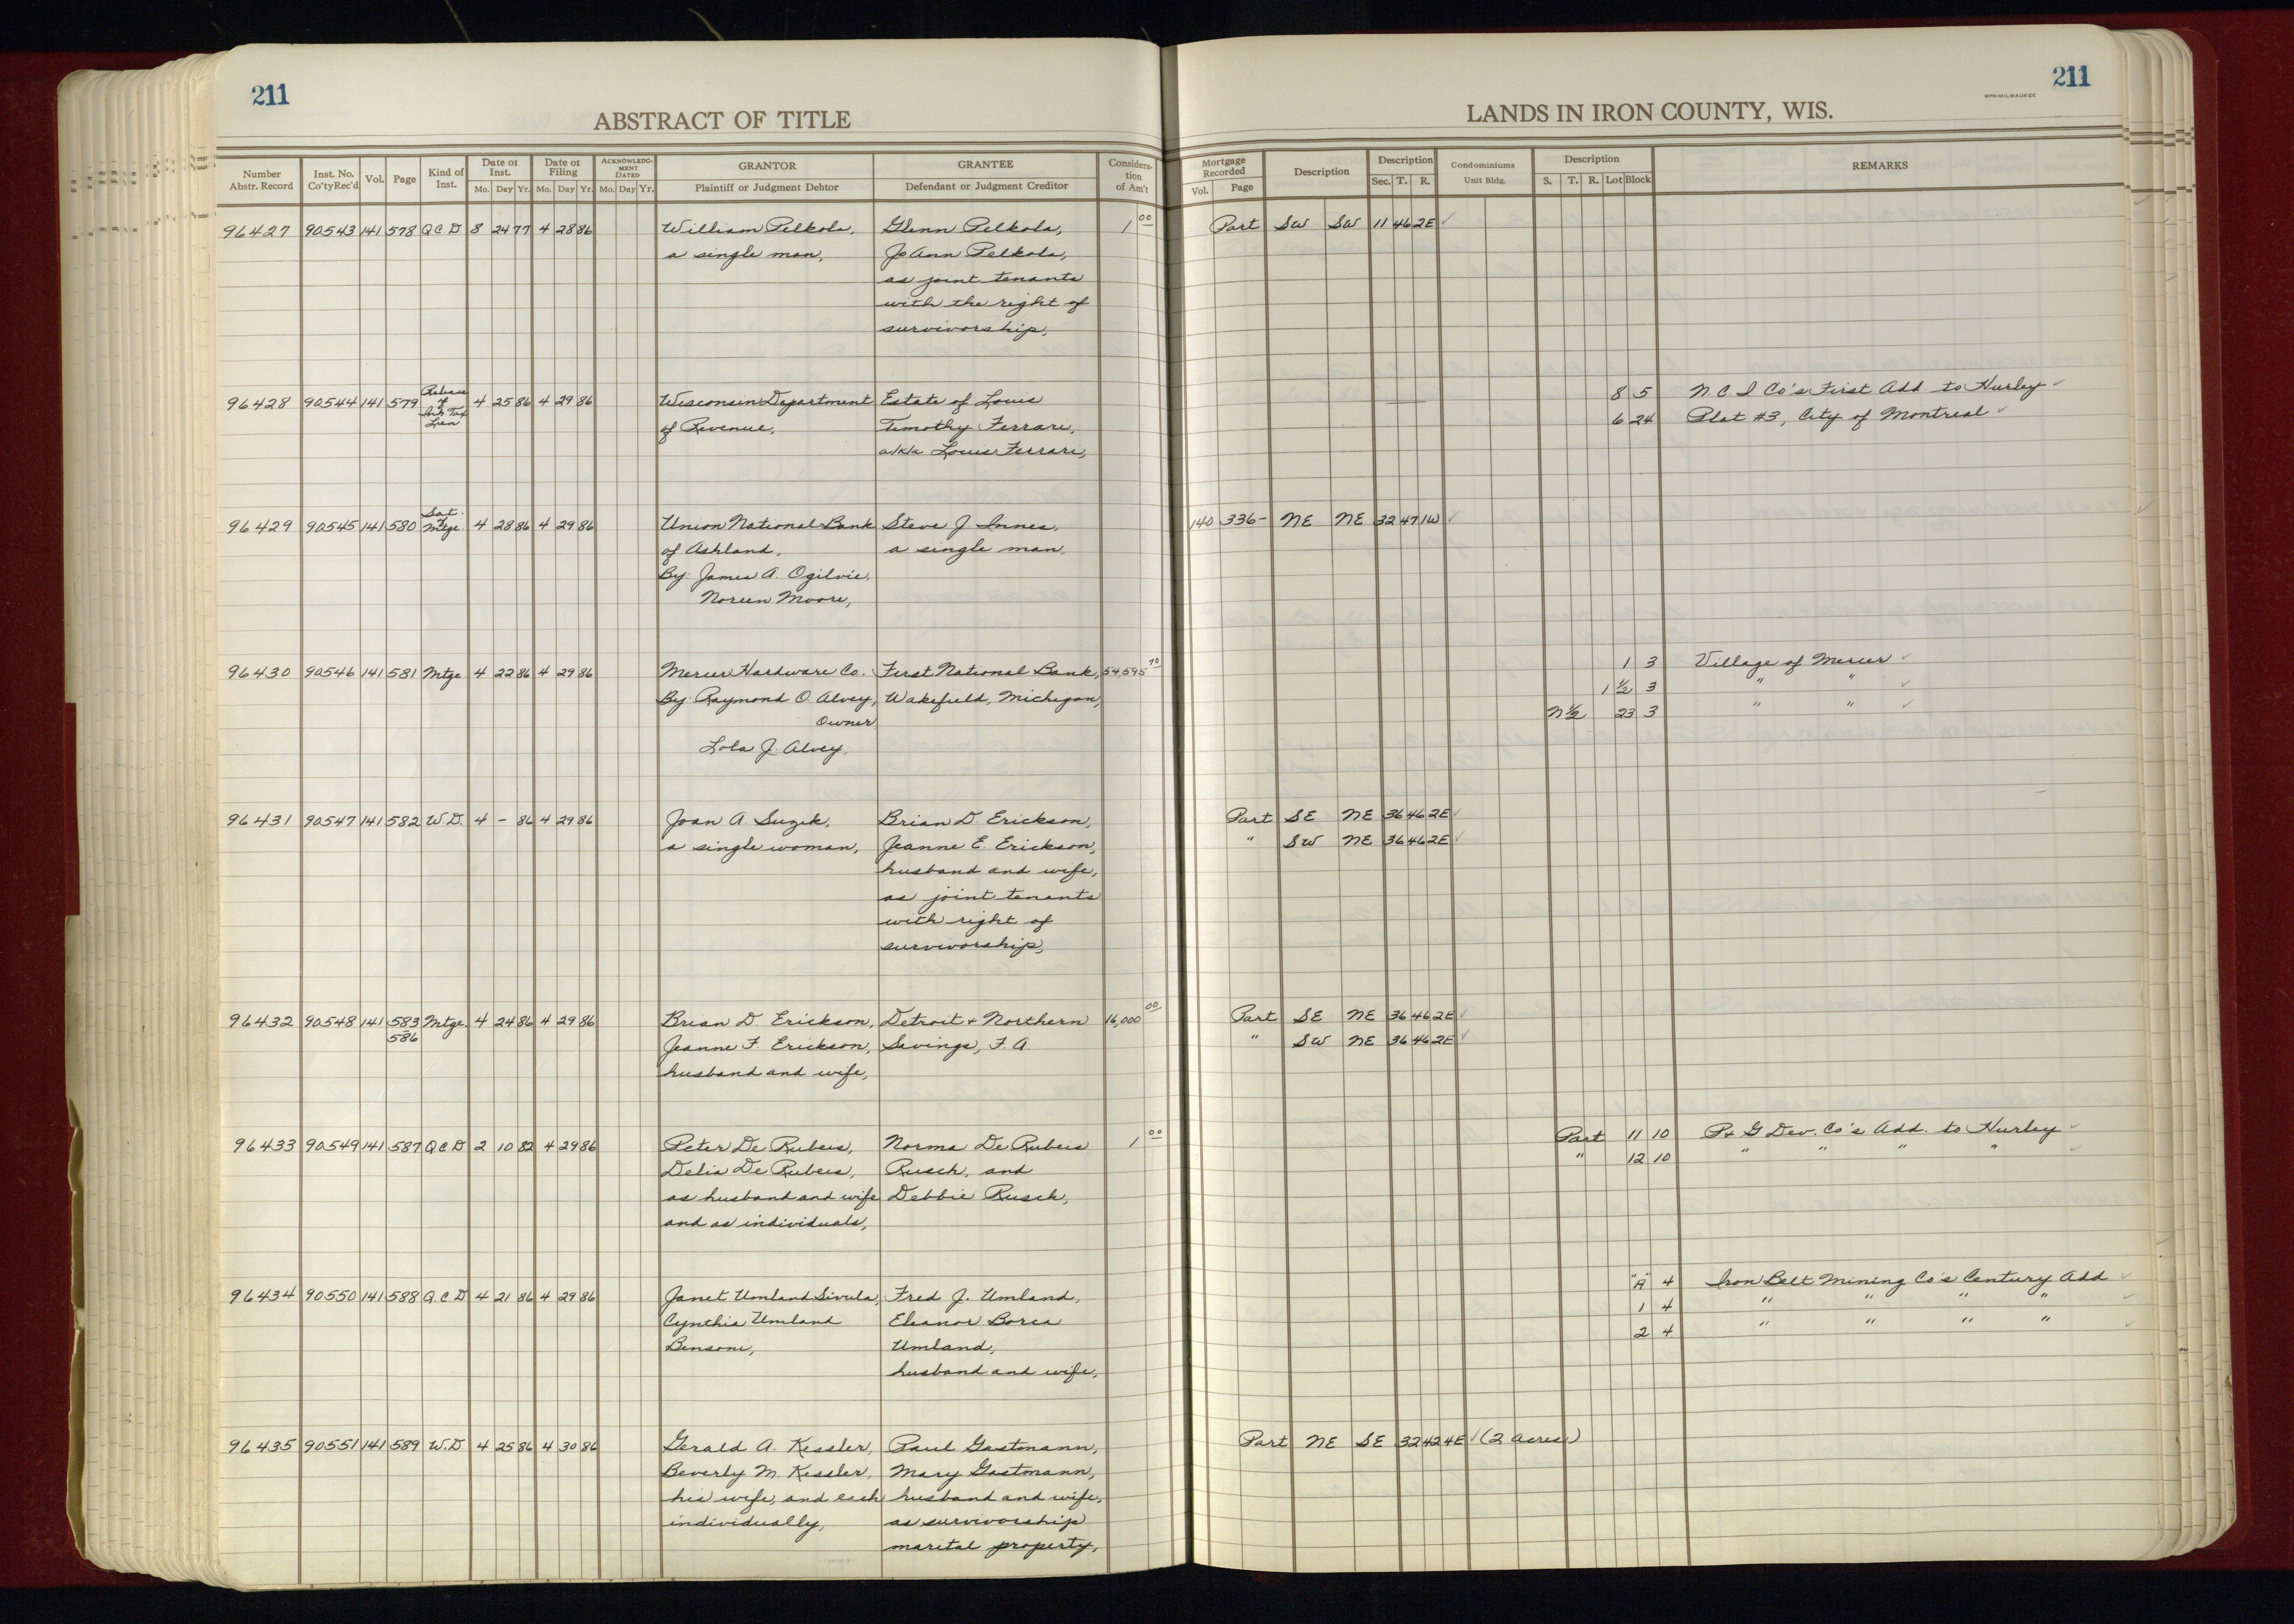 211
ABSTRACT OF TITLE
Number Abstr. Record | Inst. No. Co'ty Rec'd | Vol. | Page | Kind of Inst. | Date of Inst. Mo. Day Yr. | Date of Filing Mo. Day Yr. | ACKNOWLEDGMENT DATED Mo. Day Yr. | GRANTOR Plaintiff or Judgment Debtor | GRANTEE Defendant or Judgment Creditor | Consideration of Am't
96427 90543 141 578 QCD 8 24 77 4 28 86 William Pelkola, Glenn Pelkola, 1 00
a single man, JoAnn Pelkola,
as joint tenants
with the right of
survivorship,
96428 90544 141 579 Release of Inh Tax Lien 4 25 86 4 29 86 Wisconsin Department Estate of Louis
of Revenue, Timothy Ferrari,
a/k/a Louis Ferrari,
96429 90545 141 580 Sat. of Mtge. 4 28 86 4 29 86 Union National Bank Steve J. Innes,
of Ashland, a single man,
By: James A. Ogilvie,
Noreen Moore,
96430 90546 141 581 Mtge 4 22 86 4 29 86 Mercer Hardware Co. First National Bank, 54,595 70
By: Raymond O. Alvey, Wakefield, Michigan,
Owner
Lola J. Alvey,
96431 90547 141 582 W.D. 4 - 86 4 29 86 Joan A. Suzik, Brian D. Erickson,
a single woman, Jeanne E. Erickson,
husband and wife,
as joint tenants
with right of
survivorship,
96432 90548 141 583 586 Mtge. 4 24 86 4 29 86 Brian D. Erickson, Detroit + Northern 16,000 00
Jeanne F. Erickson, Savings, F. A
husband and wife,
96433 90549 141 587 QCD 2 10 82 4 29 86 Peter De Rubeis, Norma De Rubeis 1 00
Delia De Rubeis, Rusch, and
as husband and wife Debbie Rusch,
and as individuals,
96434 90550 141 588 Q.C.D 4 21 86 4 29 86 Janet Umland Sivula, Fred J. Umland,
Cynthia Umland Eleanor Borea
Bensoni, Umland,
husband and wife,
96435 90551 141 589 W.D 4 25 86 4 30 86 Gerald A. Kessler, Paul Gastmann,
Beverly M. Kessler, Mary Gastmann,
his wife, and each husband and wife,
individually, as survivorship
marital property,
211
WPB-MILWAUKEE
LANDS IN IRON COUNTY, WIS.
Mortgage Recorded Vol. Page | Description | Description Sec. T. R. | Condominiums Unit Bldg. | Description S. T. R. Lot Block | REMARKS
Part SW SW 11 46 2E ✓
8 5 N.C.I Co's First Add to Hurley ✓
6 24 Plat #3, City of Montreal ✓
140 336- NE NE 32 47 1W ✓
1 3 Village of Mercer ✓
1 1/2 3 " " ✓
N 1/2 23 3 " " ✓
Part SE NE 36 46 2E ✓
" SW NE 36 46 2E ✓
Part SE NE 36 46 2E ✓
" SW NE 36 46 2E ✓
Part 11 10 P+G Dev. Co's Add. to Hurley ✓
" 12 10 " " " " ✓
"A" 4 Iron Belt Mining Co's Century Add ✓
1 4 " " " " ✓
2 4 " " " " ✓
Part NE SE 32 42 4E ✓ (2 acres)